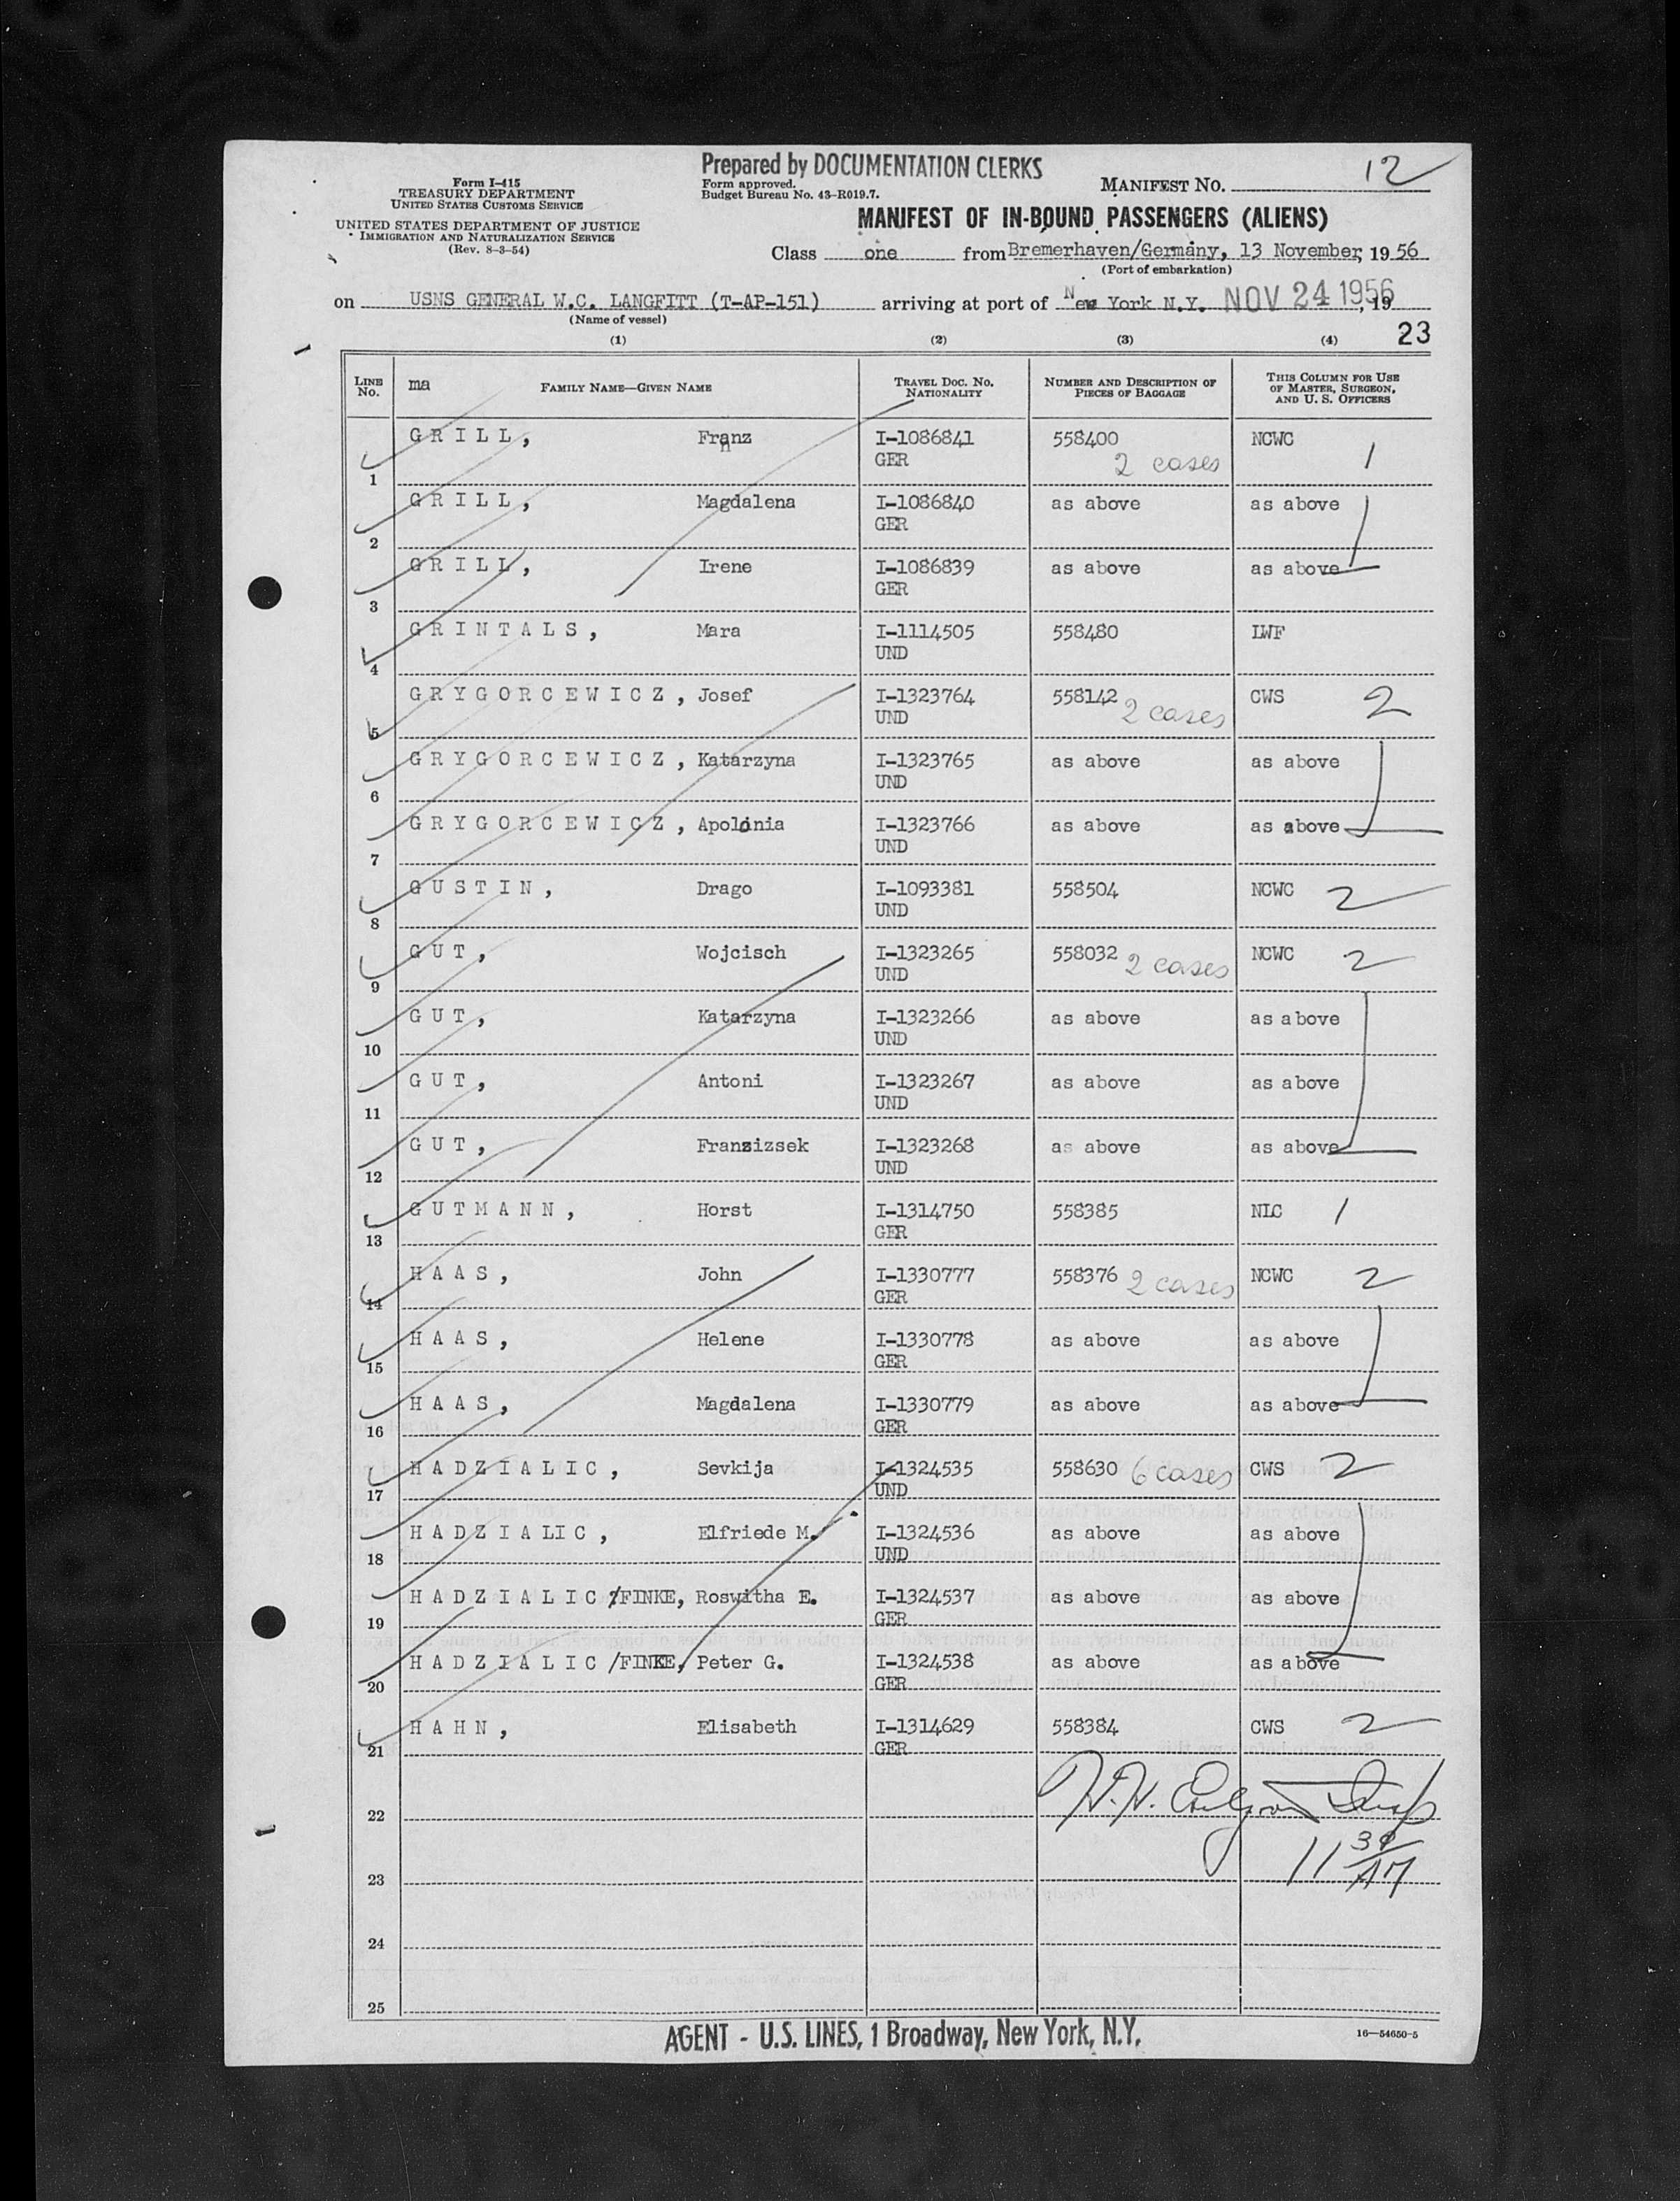 Prepared by DOCUMENTATION CLERKS
Form I-415
TREASURY DEPARTMENT
UNITED STATES CUSTOMS SERVICE
UNITED STATES DEPARTMENT OF JUSTICE
IMMIGRATION AND NATURALIZATION SERVICE
(Rev. 8-3-54)
Form approved.
Budget Bureau No. 43-R019.7.
MANIFEST No. 12
MANIFEST OF IN-BOUND PASSENGERS (ALIENS)
Class one from Bremerhaven/Germany, 13 November, 19 56
(Port of embarkation)
on USNS GENERAL W.C. LANGFITT (T-AP-151) arriving at port of New York N.Y. NOV 24 1956, 19
(Name of vessel)
(1) (2) (3) (4) 23
LINE No. ma FAMILY NAME—GIVEN NAME TRAVEL DOC. NO. NATIONALITY NUMBER AND DESCRIPTION OF PIECES OF BAGGAGE THIS COLUMN FOR USE OF MASTER, SURGEON, AND U. S. OFFICERS
1 GRILL, Franz I-1086841 GER 558400 2 cases NCWC 1
2 GRILL, Magdalena I-1086840 GER as above as above
3 GRILL, Irene I-1086839 GER as above as above
4 GRINTALS, Mara I-1114505 UND 558480 LWF
5 GRYGORCEWICZ, Josef I-1323764 UND 558142 2 cases CWS 2
6 GRYGORCEWICZ, Katarzyna I-1323765 UND as above as above
7 GRYGORCEWICZ, Apolonia I-1323766 UND as above as above
8 GUSTIN, Drago I-1093381 UND 558504 NCWC 2
9 GUT, Wojcisch I-1323265 UND 558032 2 cases NCWC 2
10 GUT, Katarzyna I-1323266 UND as above as above
11 GUT, Antoni I-1323267 UND as above as above
12 GUT, Franzizsek I-1323268 UND as above as above
13 GUTMANN, Horst I-1314750 GER 558385 NLC 1
14 HAAS, John I-1330777 GER 558376 2 cases NCWC 2
15 HAAS, Helene I-1330778 GER as above as above
16 HAAS, Magdalena I-1330779 GER as above as above
17 HADZIALIC, Sevkija I-1324535 UND 558630 6 cases CWS 2
18 HADZIALIC, Elfriede M. I-1324536 UND as above as above
19 HADZIALIC/FINKE, Roswitha E. I-1324537 GER as above as above
20 HADZIALIC/FINKE, Peter G. I-1324538 GER as above as above
21 HAHN, Elisabeth I-1314629 GER 558384 CWS 2
22
23
24
25
AGENT - U.S. LINES, 1 Broadway, New York, N.Y.
16—54650-5